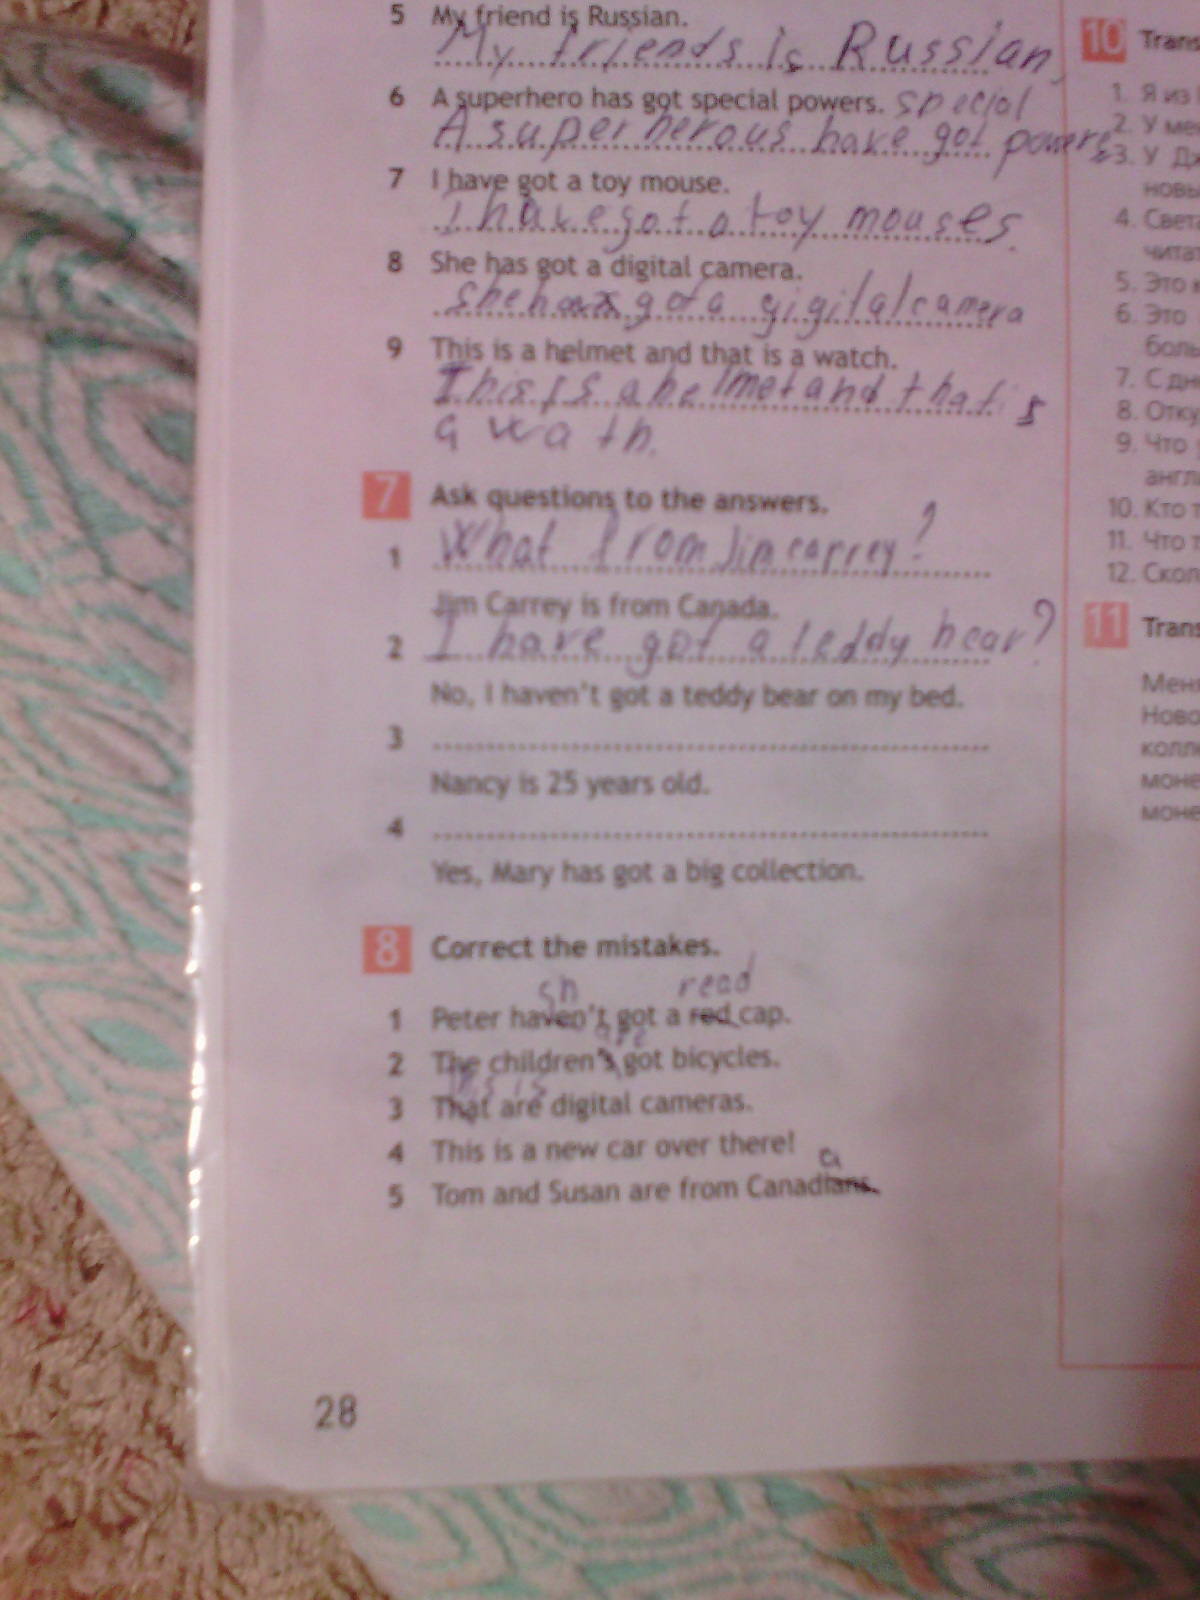 5 My friend is Russian.
My friends is Russian,
6 A superhero has got special powers. special
A superherous have got powers
7 I have got a toy mouse.
I have got a toy mouses.
8 She has got a digital camera.
she has got a gigital camera
9 This is a helmet and that is a watch.
This is a helmet and that is
a wath.
7 Ask questions to the answers.
1 What from Jim carrey?
Jim Carrey is from Canada.
2 I have got a teddy bear?
No, I haven't got a teddy bear on my bed.
3
Nancy is 25 years old.
4
Yes, Mary has got a big collection.
8 Correct the mistakes.
sn read
1 Peter haven't got a red cap.
are
2 The children's got bicycles.
This is
3 That are digital cameras.
4 This is a new car over there!
a
5 Tom and Susan are from Canadians.
28
10 Trans
1. Я из
2. У ме
3. У Дж
новы
4. Света
читат
5. Это к
6. Это
боль
7. С дн
8. Отку
9. Что у
англи
10. Кто т
11. Что т
12. Скол
11 Trans
Меня
Ново
колле
моне
моне